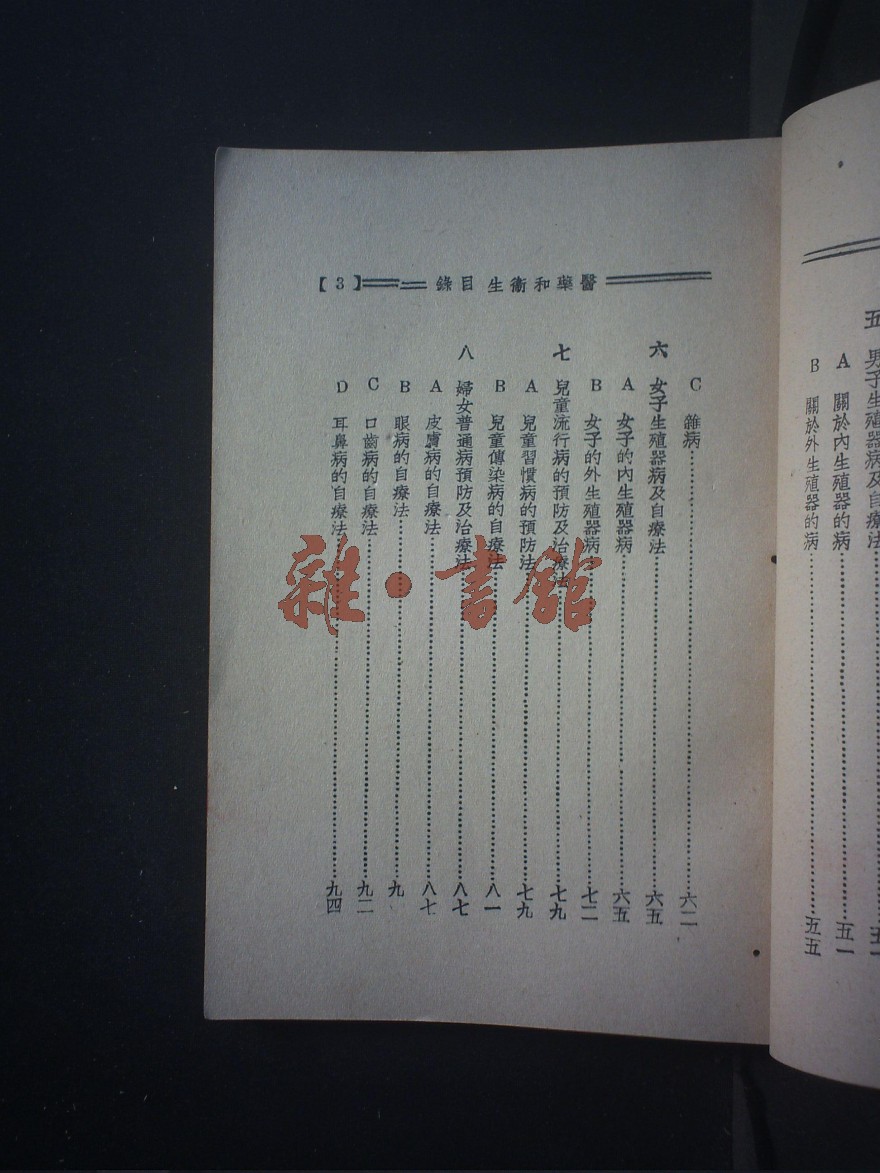 五 男子生殖器病及自療法……五一
A 關於內生殖器的病……五一
B 關於外生殖器的病……五五
醫藥和衛生 目錄 【3】
C 雜病……六二
六 女子生殖器病及自療法……六五
A 女子的內生殖器病……六五
B 女子的外生殖器病……七二
七 兒童流行病的預防及治療法……七九
A 兒童習慣病的預防法……七九
B 兒童傳染病的自療法……八一
八 婦女普通病預防及治療法……八七
A 皮膚病的自療法……八七
B 眼病的自療法……九
C 口齒病的自療法……九二
D 耳鼻病的自療法……九四
雜·書館